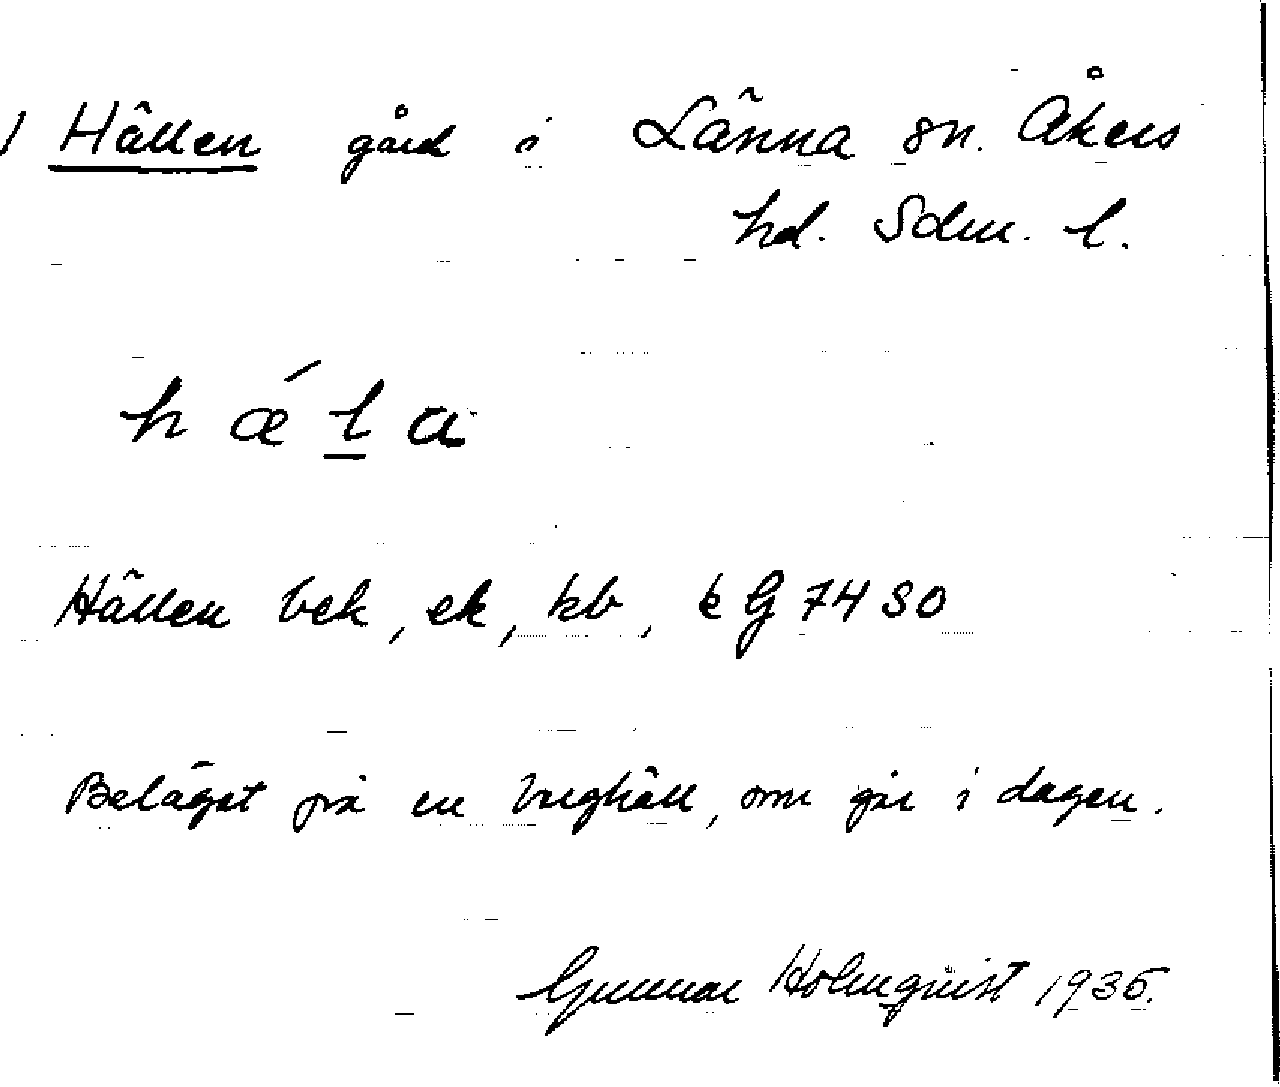 Hällen gård i Länna sn. Åkers
hd. Södm. l.
hǽl̲a
Hällen bek, ek, kb, kG 7430
Beläget på en berghäll, som går i dagen.
Gunnar Holmqvist 1935.